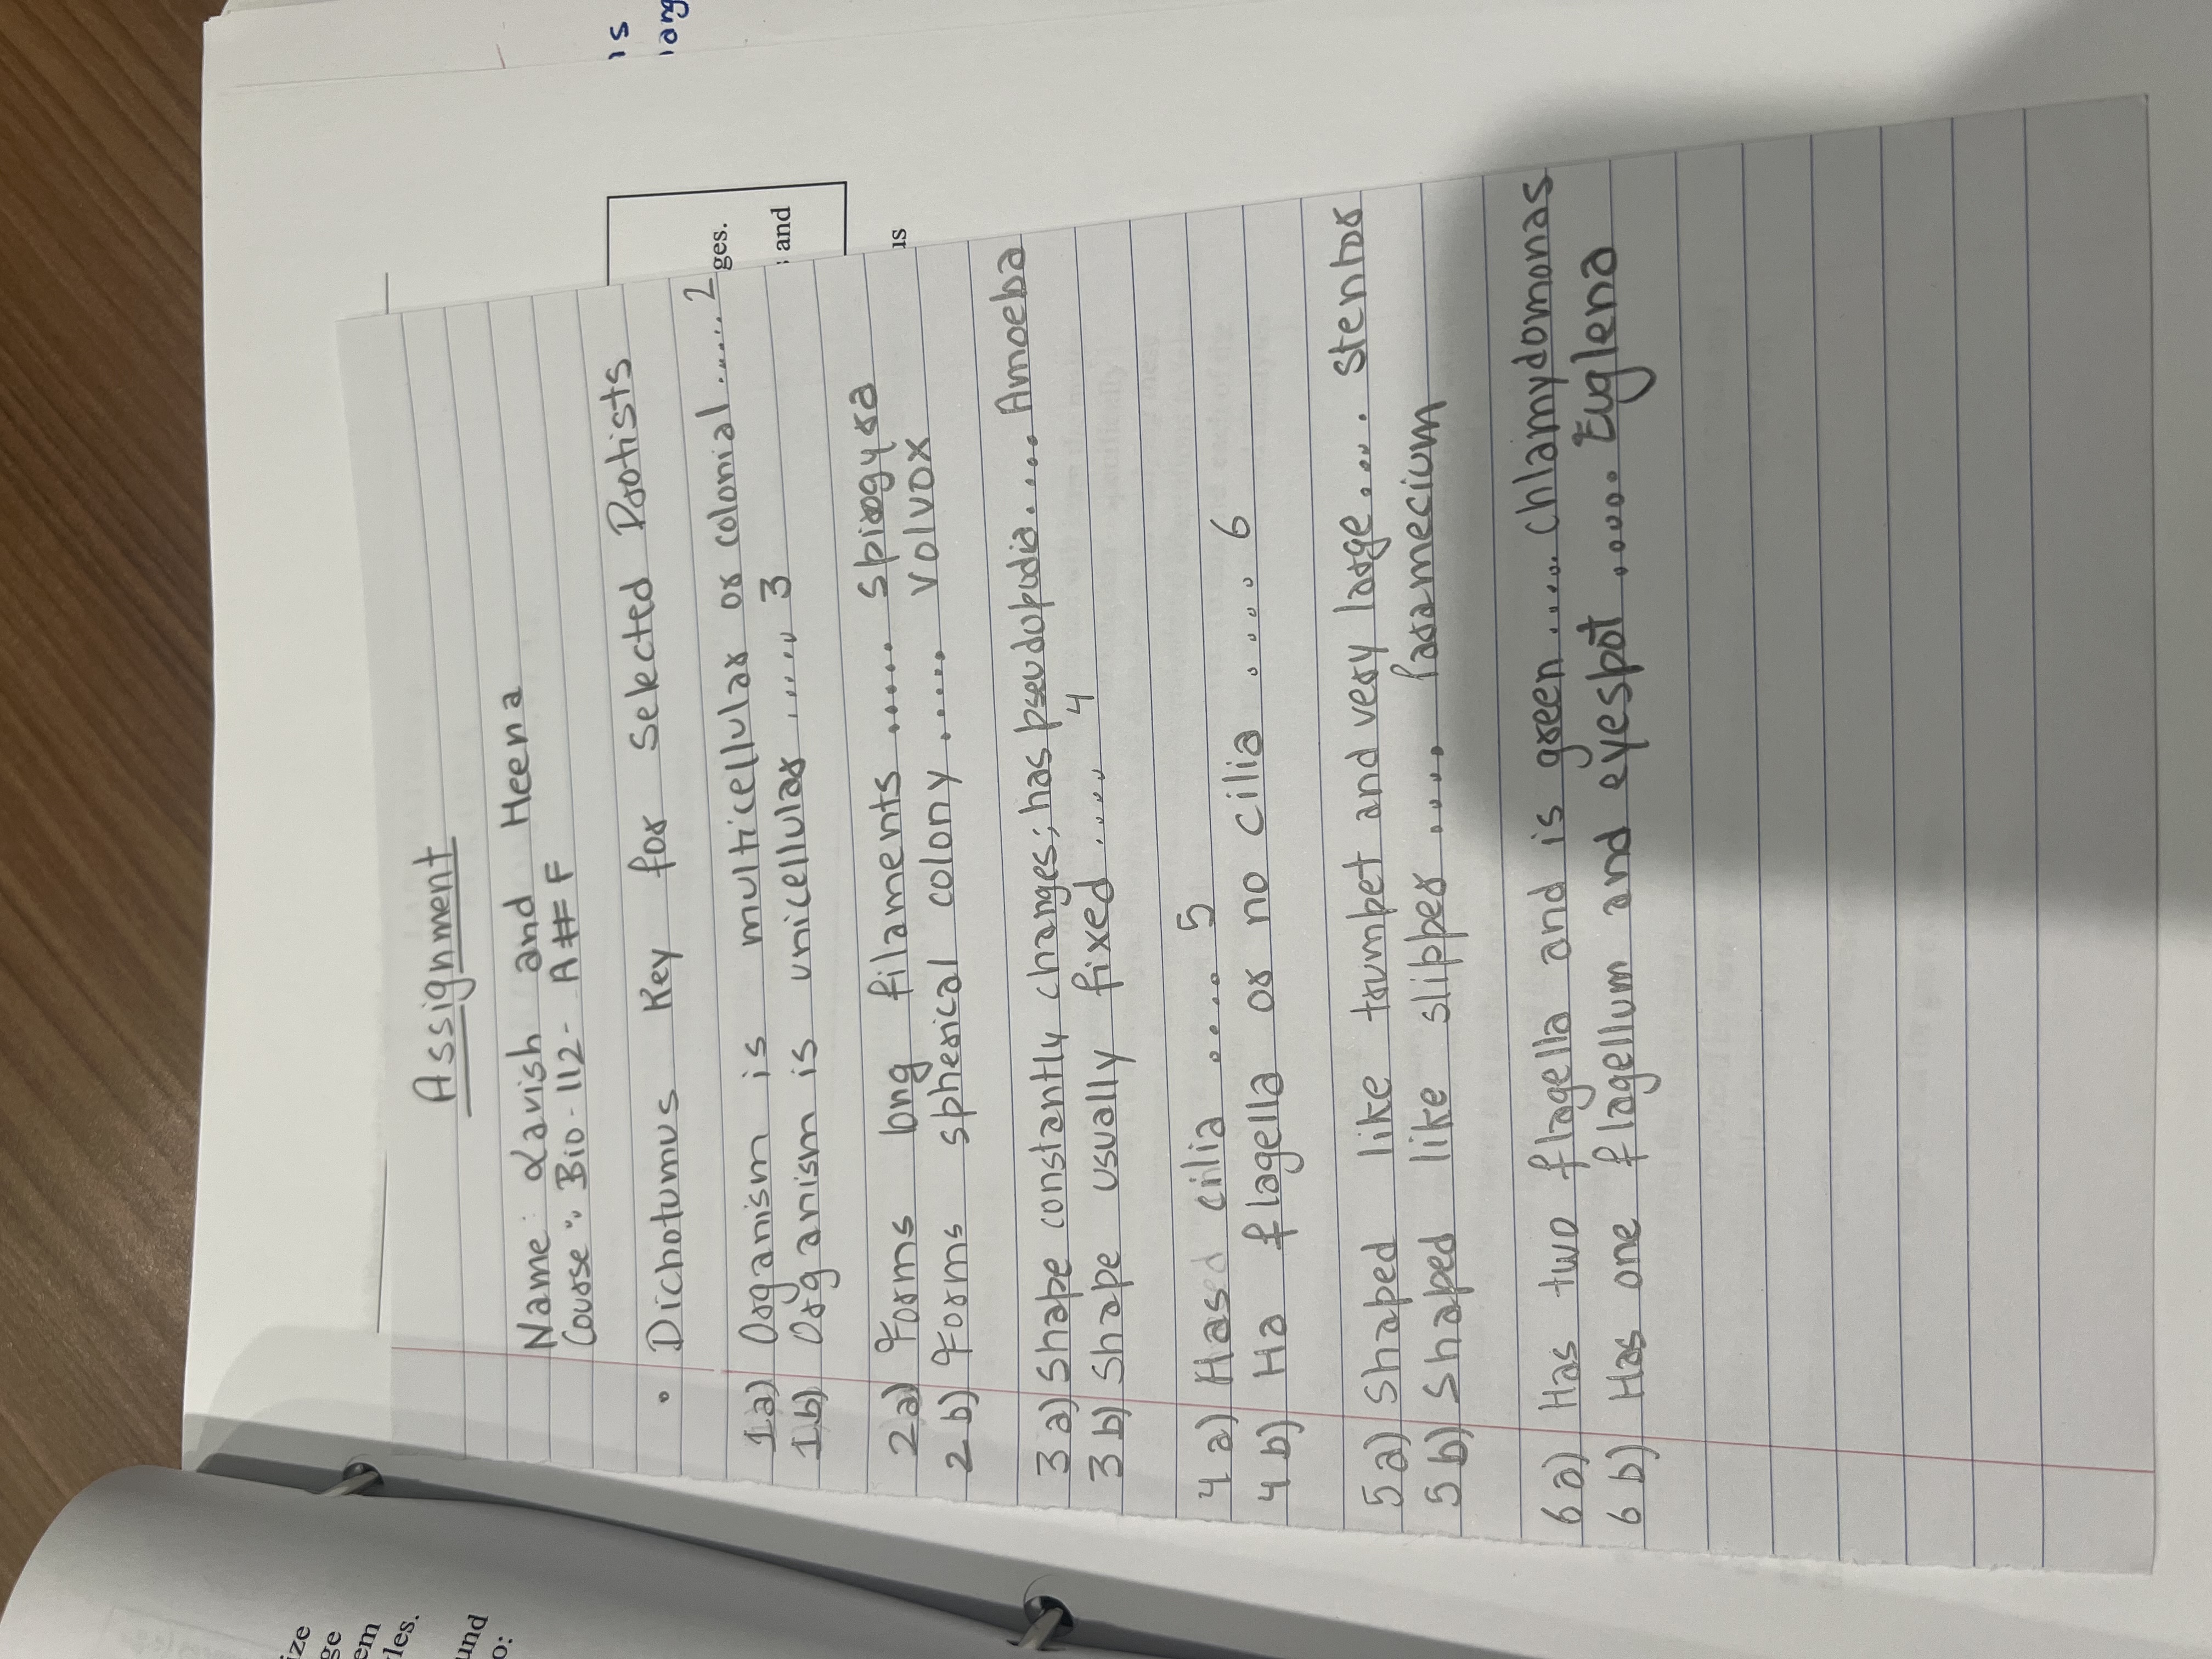 Assignment
Name: Lavish and Heena
Course: Bio-112- A#F
• Dichotumus Key for selected Protists
1a) Organism is multicellular or colonial ...... 2
1b) Organism is unicellular ...... 3
2a) Forms long filaments ...... spirogyra
2b) Forms spherical colony ...... volvox
3a) Shape constantly changes; has pseudopodia..... Amoeba
3b) Shape usually fixed ..... 4
4a) Hased cinlia .... 5
4b) Ha flagella or no cilia .... 6
5a) Shaped like trumpet and very large..... stentor
5b) Shaped like slipper ..... Paramecium
6a) Has two flagella and is green ..... chlamydomonas
6b) Has one flagellum and eyespot ..... Euglena
is
ges.
and
us
ize
ge
em
les.
und
o: